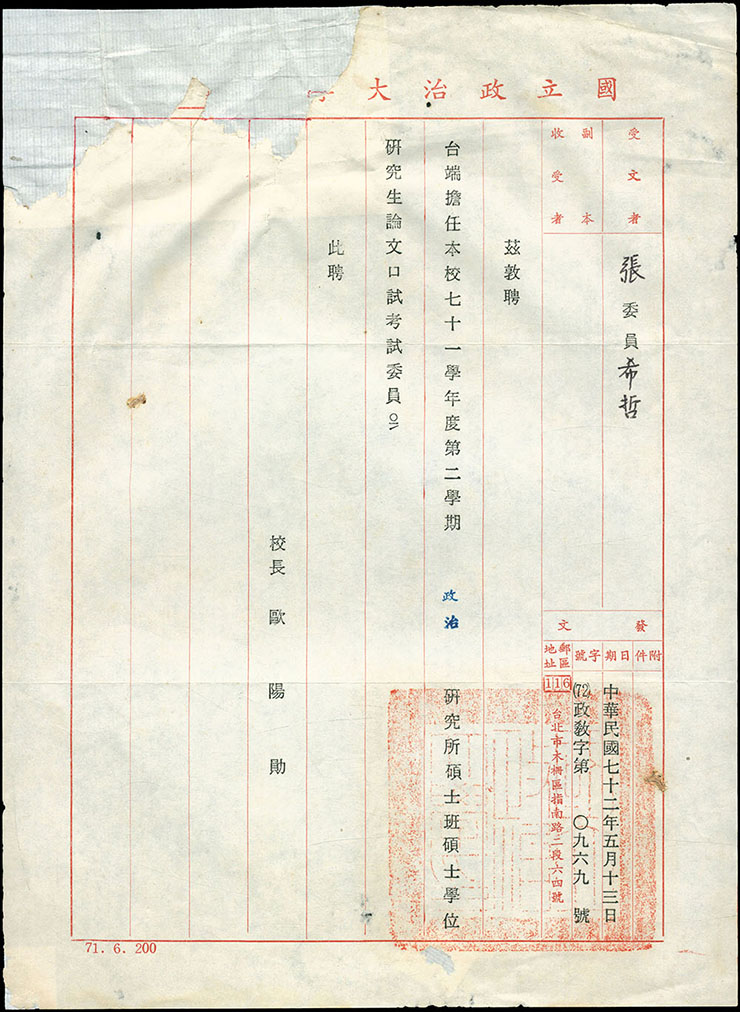 國立政治大學
受文者
副本
收受者
張委員希哲
發文
附件
日期
字號
郵區
地址
中華民國七十二年五月十三日
(72)政教字第〇九六九號
116
台北市木柵區指南路二段六四號
茲敦聘
台端擔任本校七十一學年度第二學期 政治 研究所碩士班碩士學位
研究生論文口試考試委員。
此聘
校長 歐陽勛
71. 6. 200